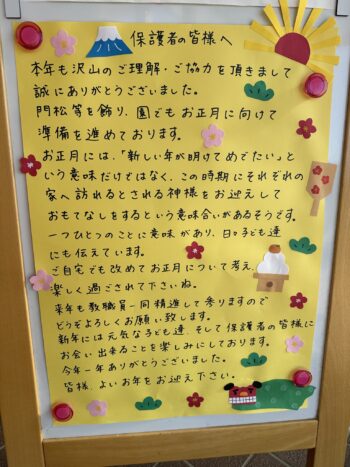 保護者の皆様へ
本年も沢山のご理解・ご協力を頂きまして
誠にありがとうございました。
門松等を飾り、園でもお正月に向けて
準備を進めております。
お正月には、「新しい年が明けてめでたい」と
いう意味だけではなく、この時期にそれぞれの
家へ訪れるとされる神様をお迎えして
おもてなしをするという意味合いがあるそうです。
一つひとつのことに意味があり、日々子ども達
にも伝えています。
ご自宅でも改めてお正月について考え、
楽しく過ごされて下さいね。
来年も教職員一同精進して参りますので
どうぞよろしくお願い致します。
新年には元気な子ども達、そして保護者の皆様に
お会い出来ることを楽しみにしております。
今年一年ありがとうございました。
皆様、よいお年をお迎え下さい。